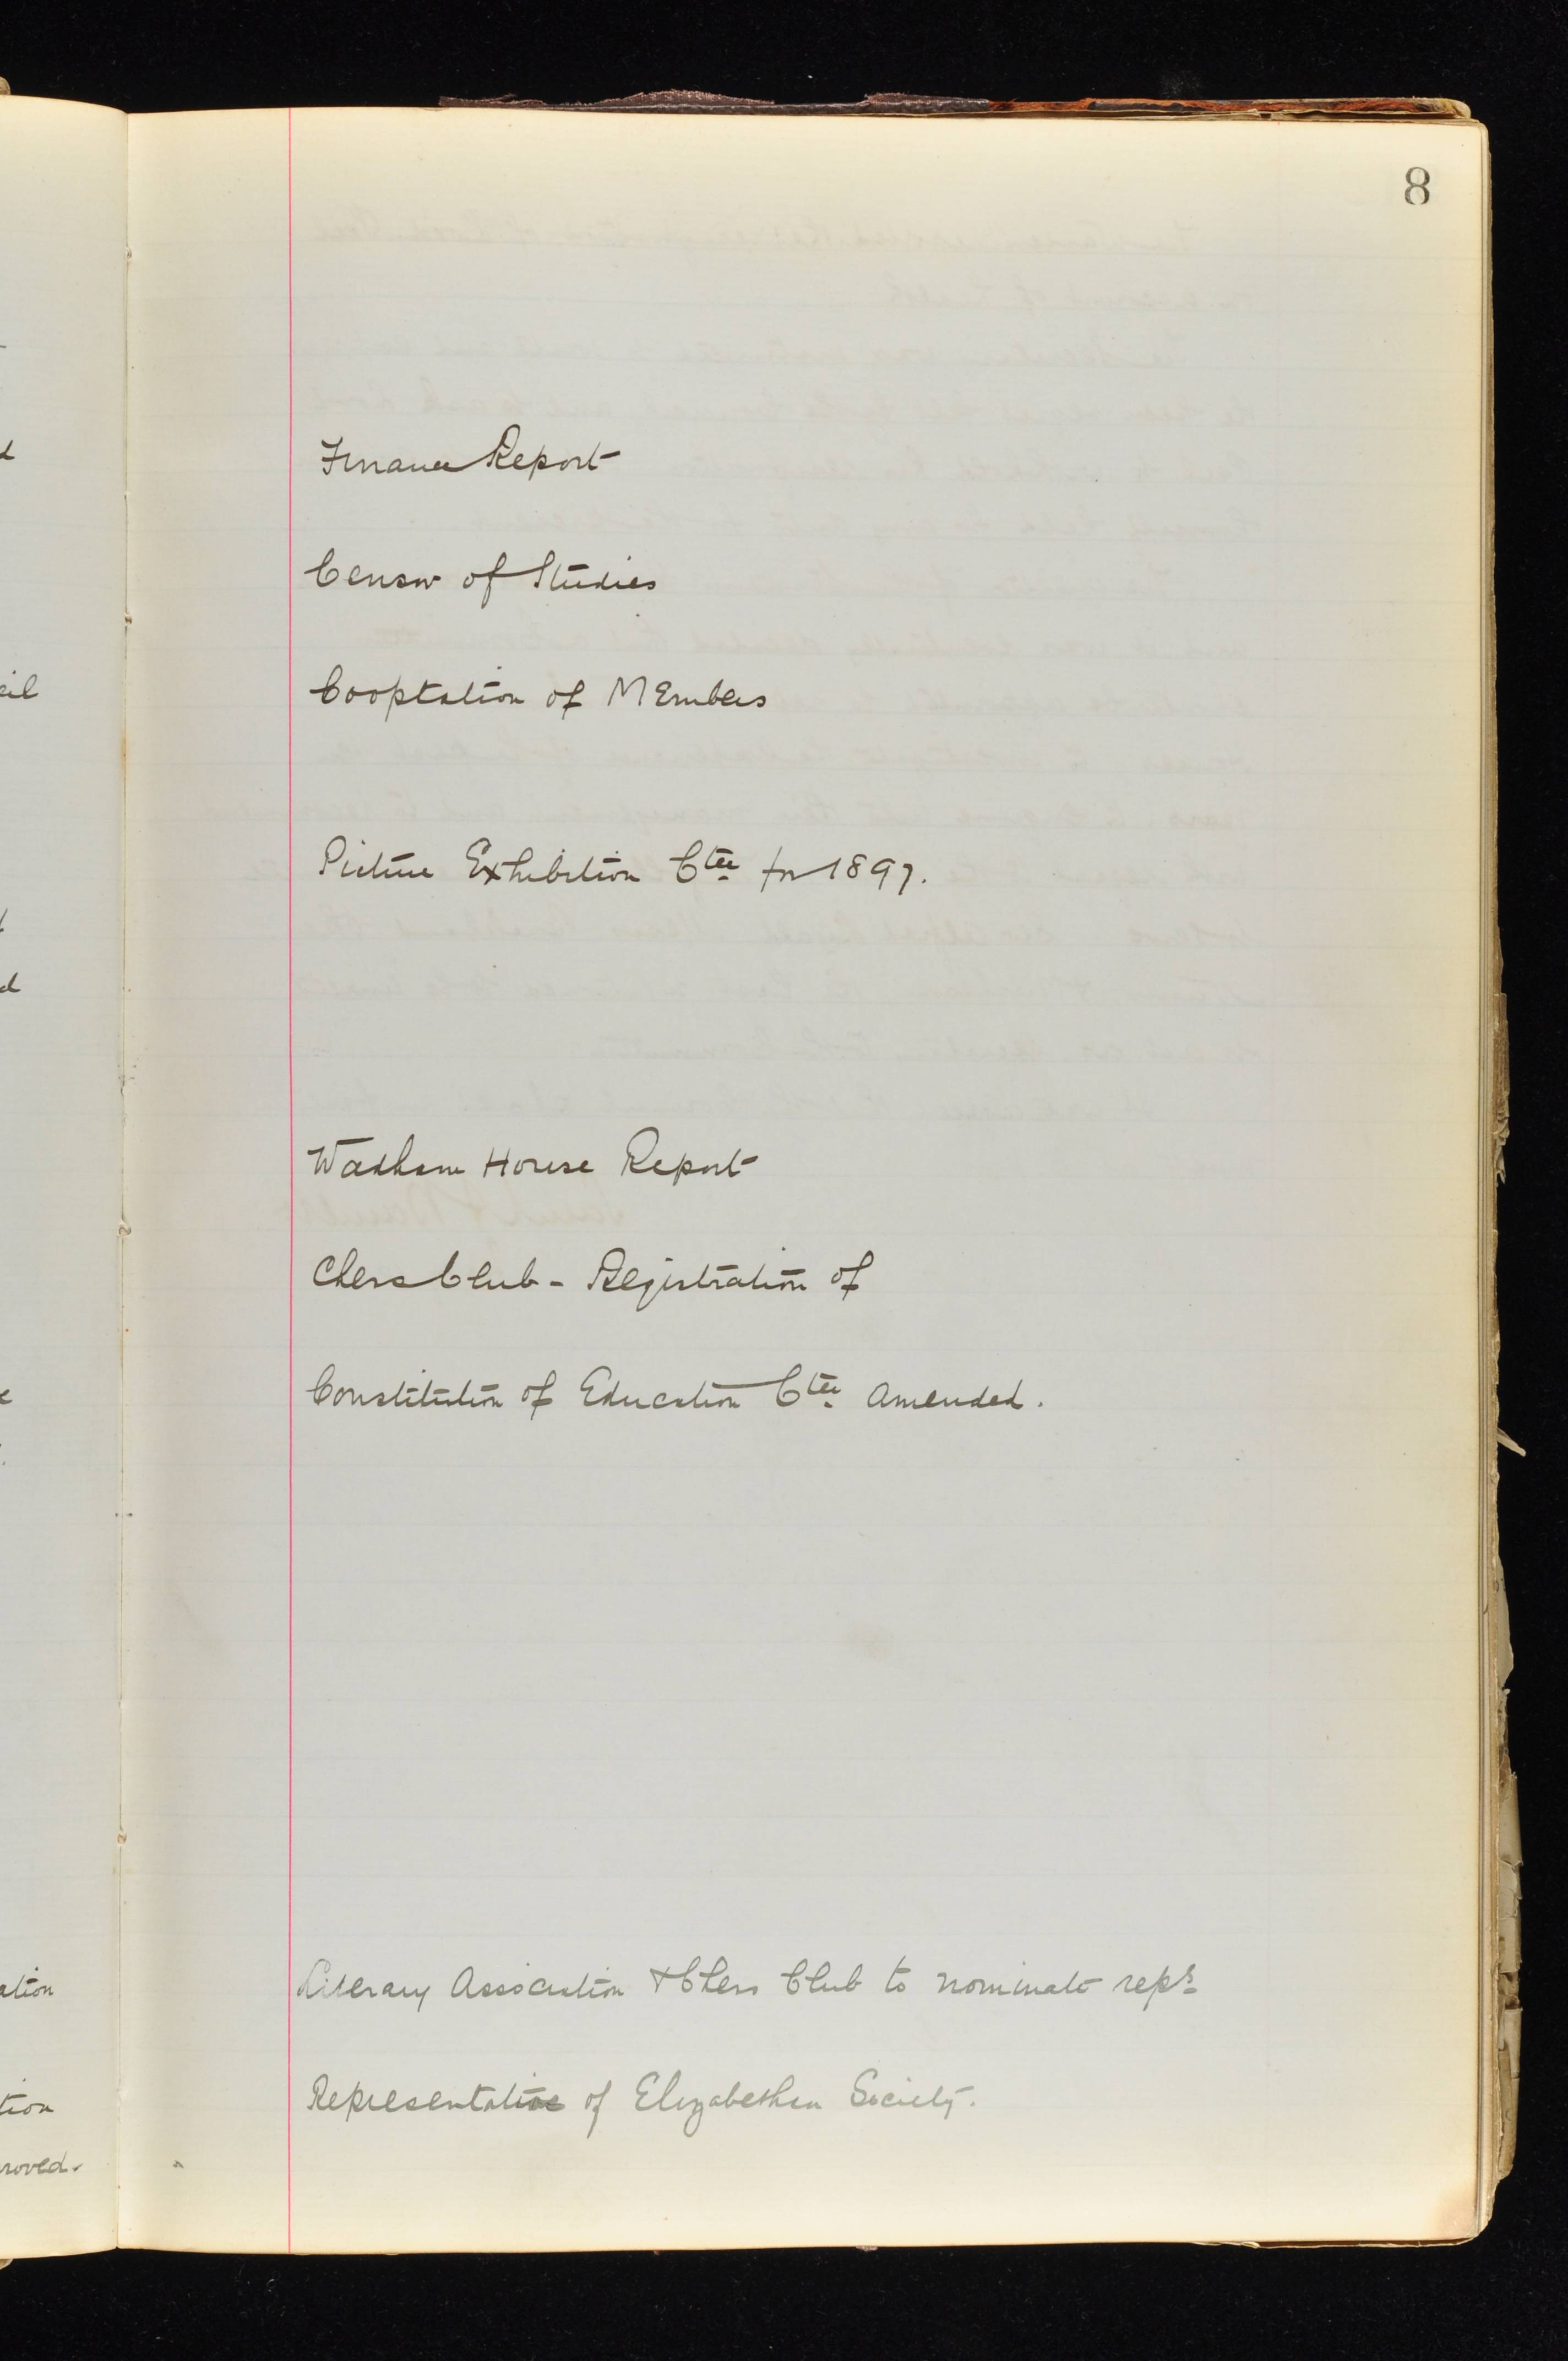 8
Finance Report
Censor of Studies
Cooptation of Members
Picture Exhibition Ctee for 1897.
Wadham House Report
Chess Club - Registration of
Constitution of Education Ctee Amended.
Literary Association & Chess Club to nominate reps
Representative of Elizabethan Society.